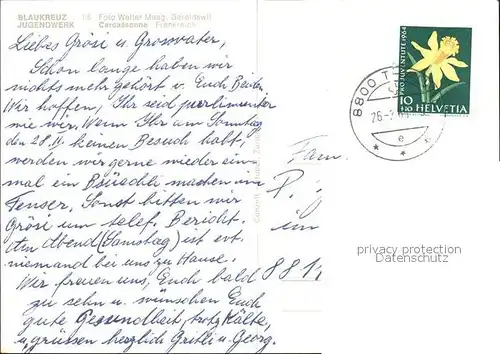 BLAUKREUZ
JUGENDWERK
Foto Walter Maag, Gerolswil
Carcassonne Frankreich
Liebes Grösi u. Grossvater,
Schon lange haben wir
nichts mehr gehört v. Euch Beiden
Wir hoffen, Ihr seid putzmunter
wie wir. Wenn Ihr am Sonntag
den 28. II. keinen Besuch habt,
werden wir gerne wieder ein-
mal ein Bsüächli machen im
Tenser, Sonst bitten wir
Grösi um telef. Bericht.
Am Abend (Samstag) ist evt.
niemand bei uns zu Hause.
Wir freuen uns, Euch bald
zu sehn u. wünschen Euch
gute Gesundheit, trotz Kälte,
u. grüssen herzlich Gritli u. Georg.
PRO JUVENTUTE 1964
10
+10
HELVETIA
8800 T
26.-2
e
Fam.
P.
im
881
privacy protection
Datenschutz